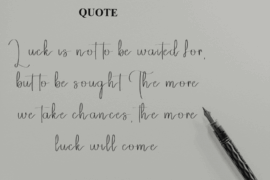 QUOTE
Luck is not to be waited for,
but to be sought The more
we take chances, the more
luck will come